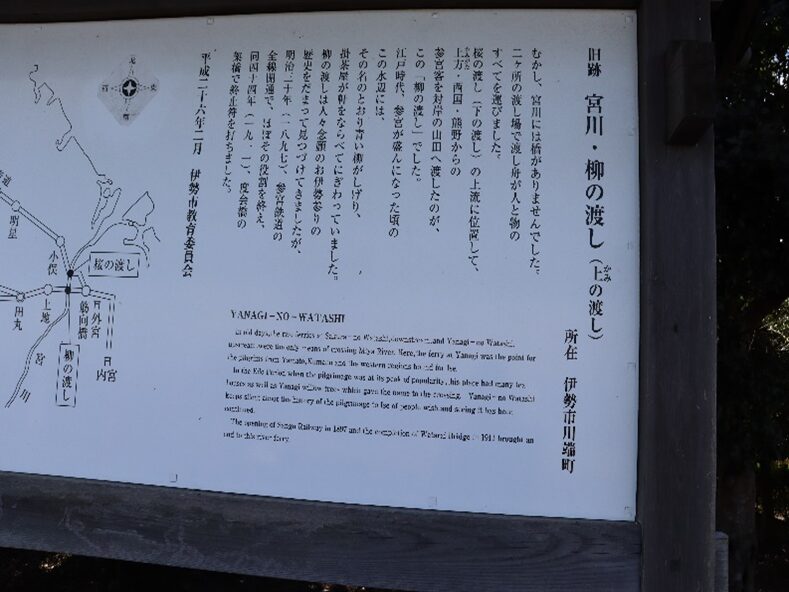 旧跡 宮川・柳の渡し（上の渡し）
かみ
所在 伊勢市川端町
むかし、宮川には橋がありませんでした。
二ヶ所の渡し場で渡し舟が人と物の
すべてを運びました。
桜の渡し（下の渡し）の上流に位置して、
上方・西国・熊野からの
かみがた
参宮客を対岸の山田へ渡したのが、
この「柳の渡し」でした。
江戸時代、参宮が盛んになった頃の
この水辺には、
その名のとおり青い柳がしげり、
掛茶屋が軒をならべてにぎわっていました。
柳の渡しは人々念願のお伊勢参りの
歴史をだまって見つづけてきましたが、
明治三十年（一八九七）、参宮鉄道の
全線開通で、ほぼその役割を終え、
同四十四年（一九一一）、度会橋の
架橋で終止符を打ちました。
平成二十六年二月 伊勢市教育委員会
YANAGI-NO-WATASHI
In old days, the two ferries at Sakura-no Watashi, downstream, and Yanagi-no Watashi,
upstream were the only means of crossing Miya River. Here, the ferry at Yanagi was the point for
the pilgrims from Yamato, Kumano and the western regions bound for Ise.
In the Edo Period when the pilgrimage was at its peak of popularity, this place had many tea
houses as well as Yanagi willow trees which gave the name to the crossing. Yanagi-no Watashi
keeps silent about the history of the pilgrimage to Ise of people and seeing it has been
continued.
The opening of Sangu Railway in 1897 and the completion of Watarai Bridge in 1911 brought an
end to this river ferry.
北
東
南
西
道
明星
小俣
桜の渡し
田丸
上地
筋向橋
外宮
内宮
柳の渡し
宮
川